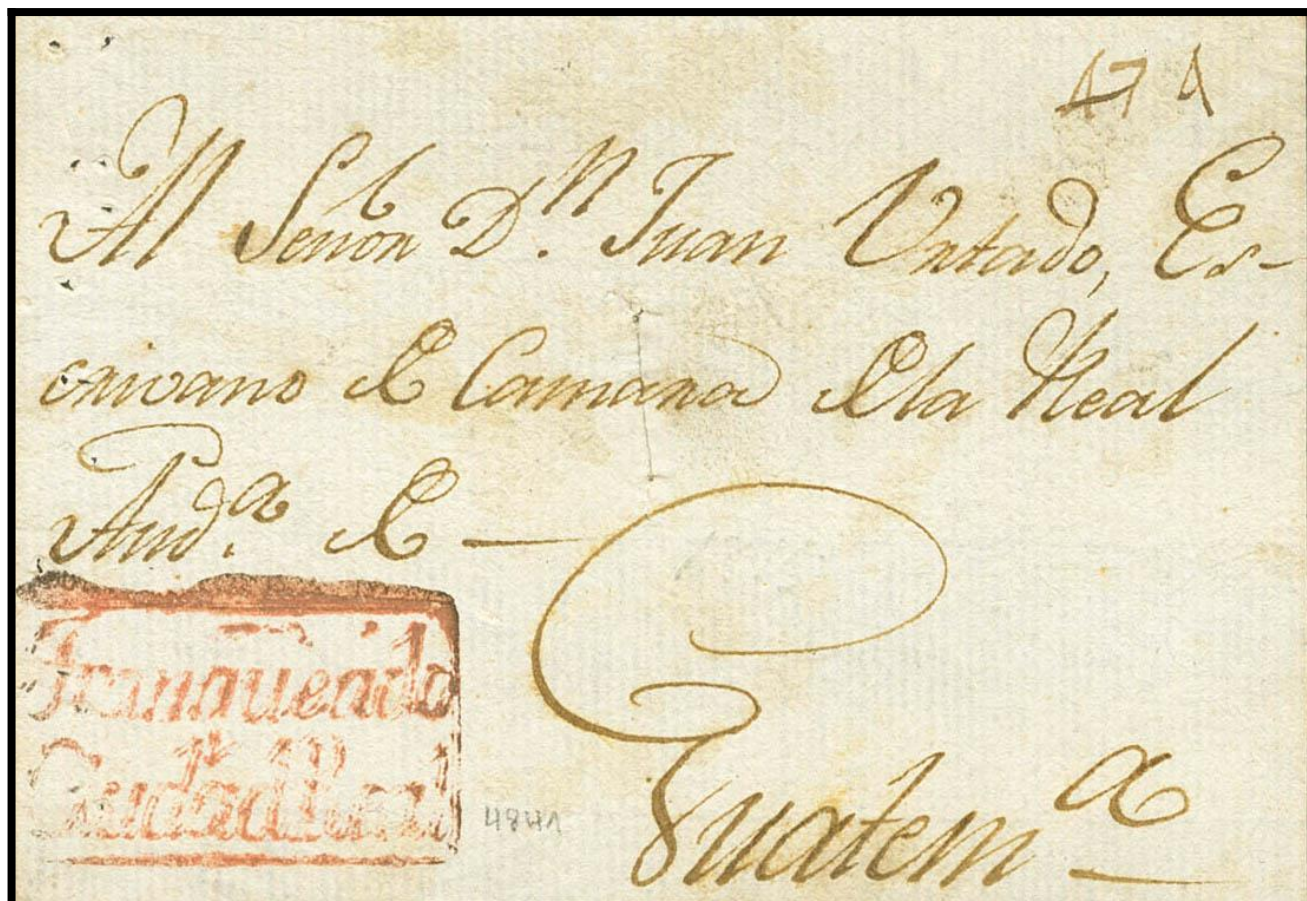 Al Señor Dⁿ. Juan Vrtado, Es-
crivano de Camara de la Real
Audª. de —
Guatemª
Franqueado
Ciudad Real
4841